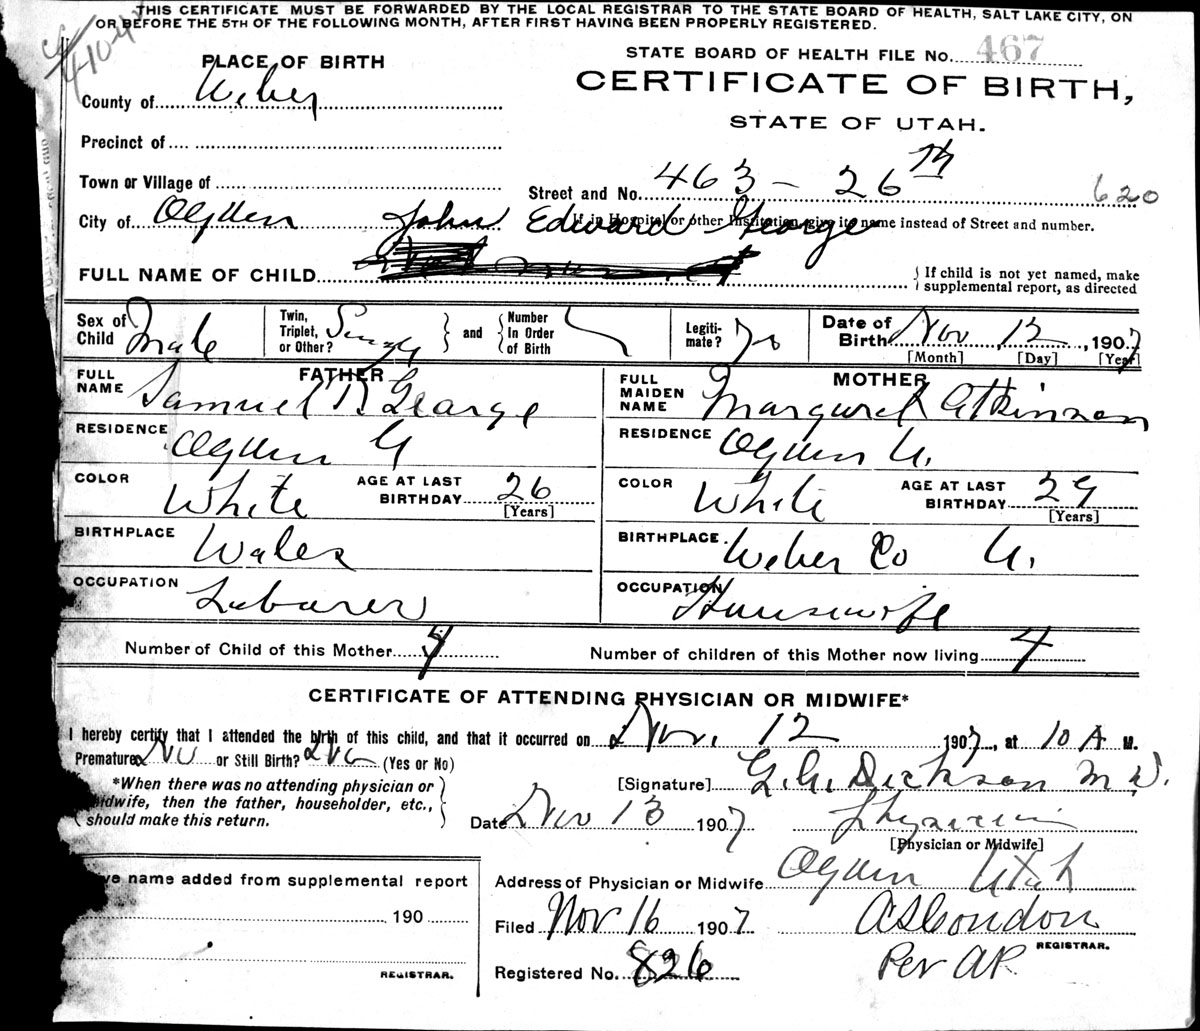 THIS CERTIFICATE MUST BE FORWARDED BY THE LOCAL REGISTRAR TO THE STATE BOARD OF HEALTH, SALT LAKE CITY, ON
OR BEFORE THE 5TH OF THE FOLLOWING MONTH, AFTER FIRST HAVING BEEN PROPERLY REGISTERED.
STATE BOARD OF HEALTH FILE No. 467
PLACE OF BIRTH
CERTIFICATE OF BIRTH,
County of Weber
STATE OF UTAH.
Precinct of
Town or Village of
Street and No. 463 – 26th
620
City of Ogden
If in Hospital or other Institution, give its name instead of Street and number.
John Edward George
FULL NAME OF CHILD
If child is not yet named, make
supplemental report, as directed
Sex of Child Male
Twin, Triplet, or Other? Single
and
Number In Order of Birth
Legiti- mate?
Date of Birth Nov 12, 1907
[Month] [Day] [Year]
FATHER
FULL NAME Samuel R George
RESIDENCE Ogden U
COLOR White
AGE AT LAST BIRTHDAY 26
[Years]
BIRTHPLACE Wales
OCCUPATION Laborer
MOTHER
FULL MAIDEN NAME Margaret Atkinson
RESIDENCE Ogden U.
COLOR White
AGE AT LAST BIRTHDAY 29
[Years]
BIRTHPLACE Weber Co U.
OCCUPATION Housewife
Number of Child of this Mother 4
Number of children of this Mother now living 4
CERTIFICATE OF ATTENDING PHYSICIAN OR MIDWIFE*
I hereby certify that I attended the birth of this child, and that it occurred on Nov. 12 1907, at 10 A M.
Premature No or Still Birth? No (Yes or No)
*When there was no attending physician or
midwife, then the father, householder, etc.,
should make this return.
[Signature] G. A. Dickson M.D.
Date Nov 13 1907
Physician
[Physician or Midwife]
Address of Physician or Midwife Ogden Utah
name added from supplemental report
190
REGISTRAR.
Filed Nov 16 1907.
A S Condon
REGISTRAR.
Registered No. 826
Per AR